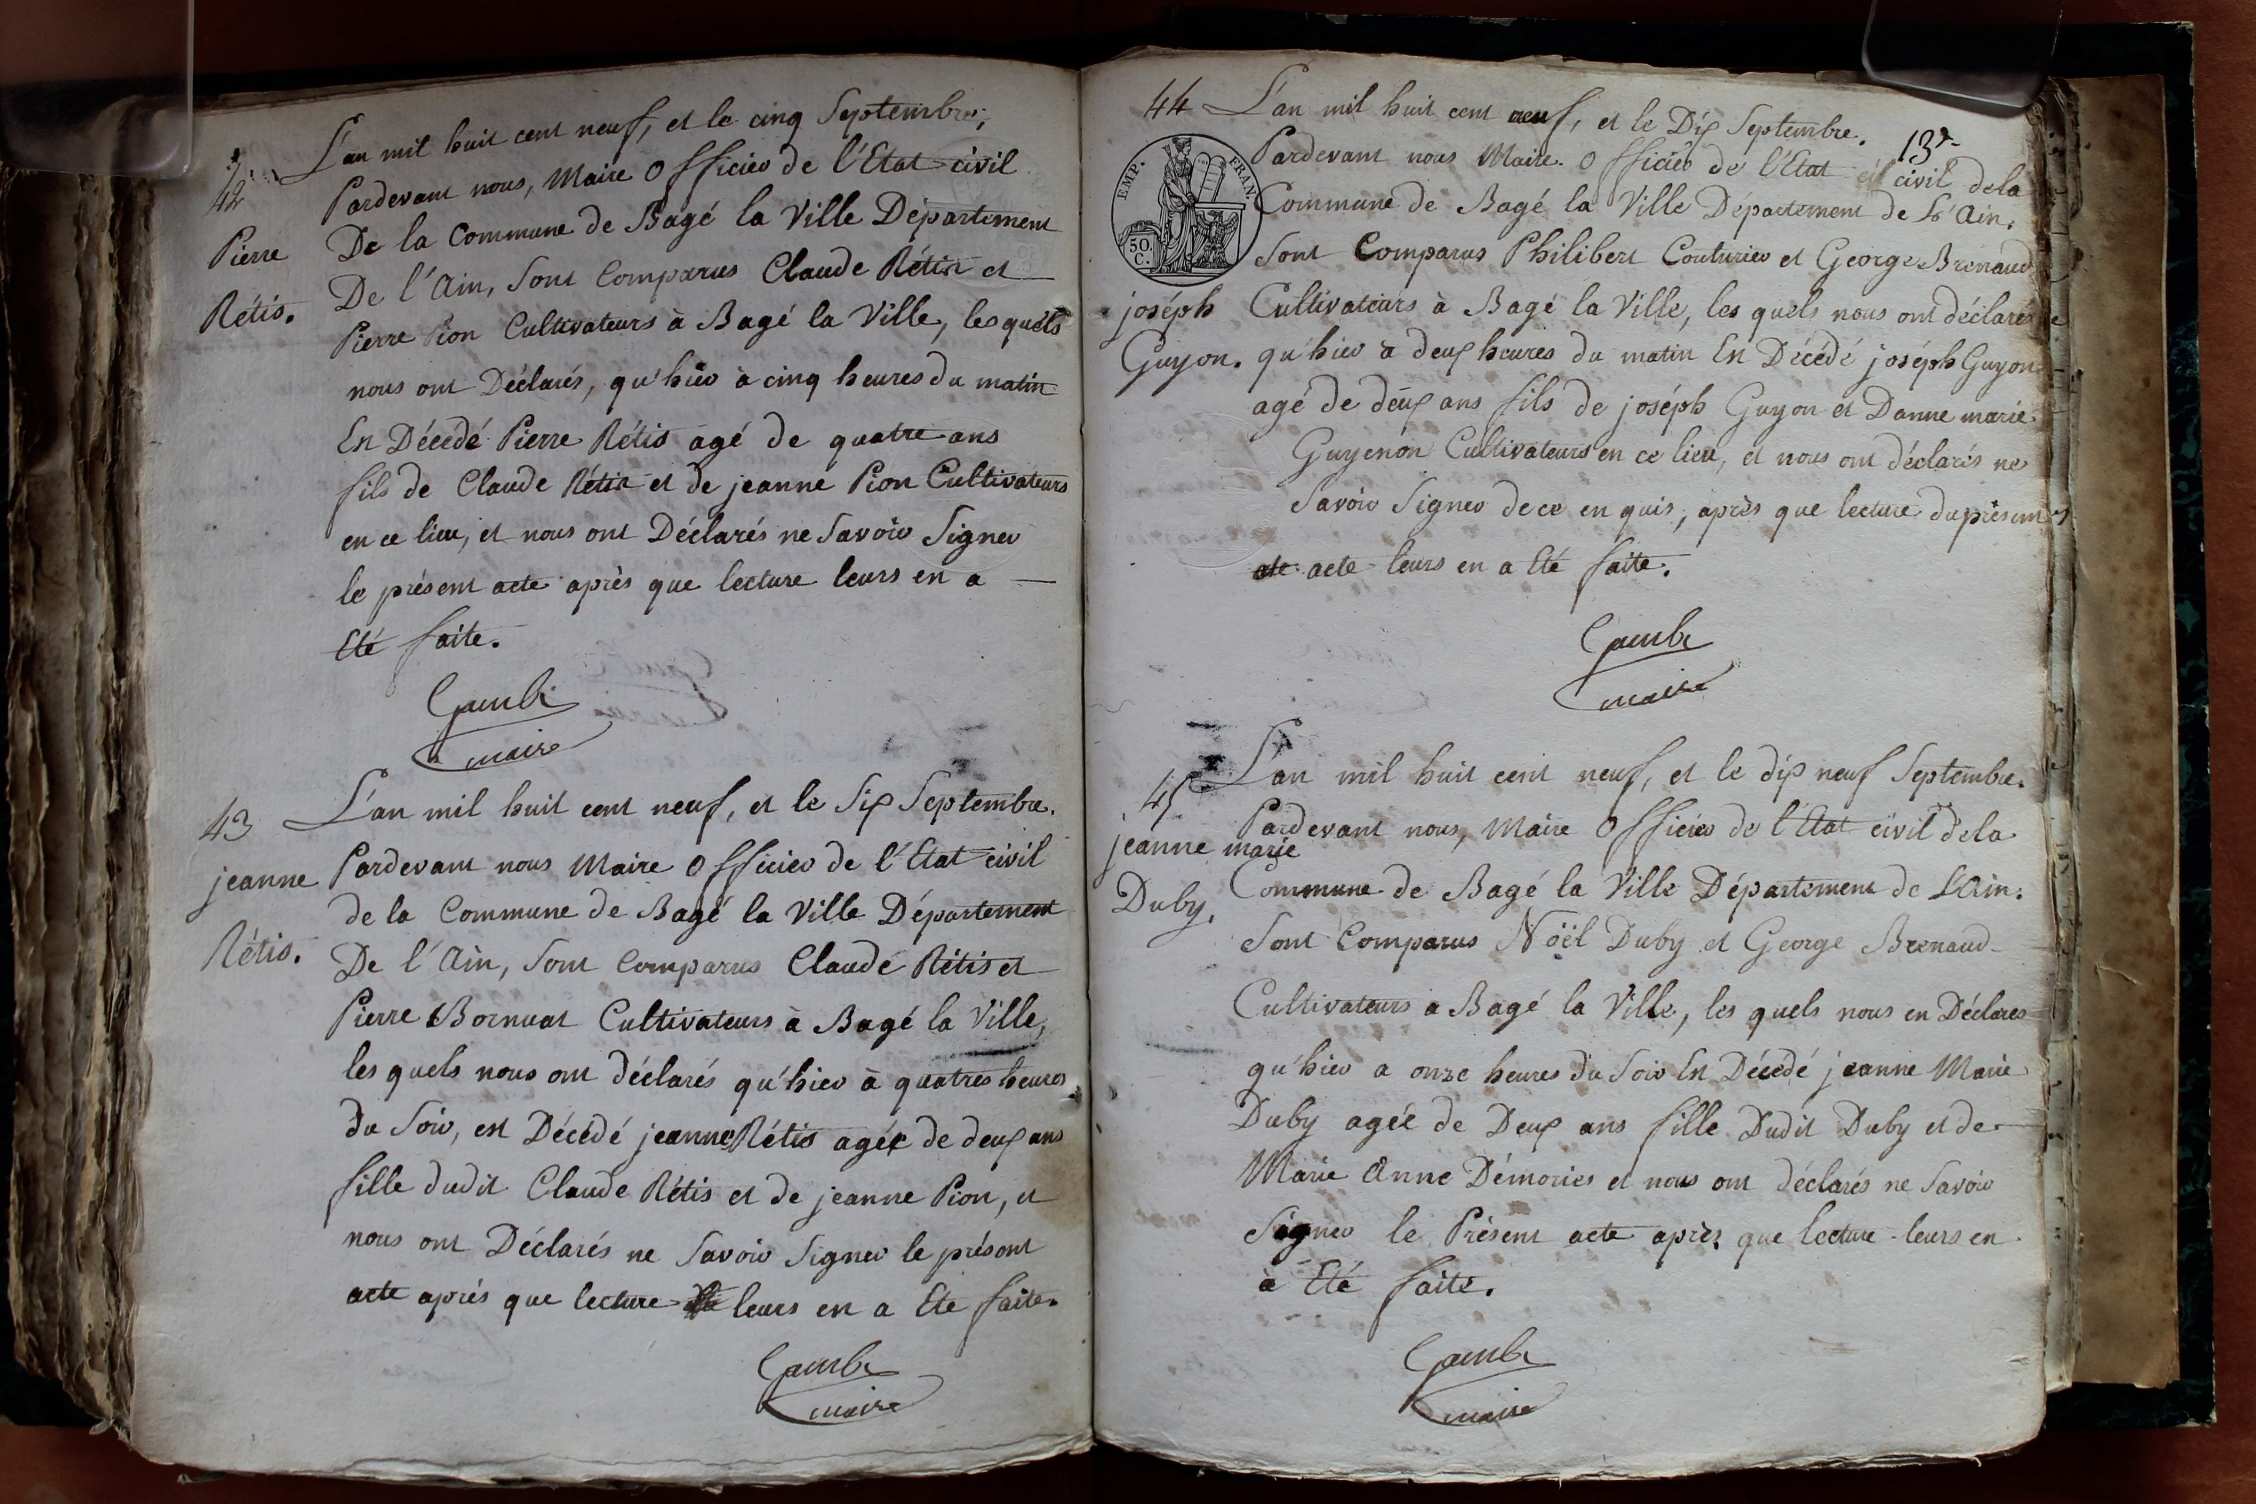 42
Pierre
Rétis.
L'an mil huit cent neuf, et le cinq Septembre,
Pardevant nous, Maire Officier de l'Etat civil
De la Commune de Bagé la Ville Département
De l'Ain, Sont Comparus Claude Rétis et
Pierre Pion Cultivateurs à Bagé la Ville, les quels
nous ont Déclarés, qu'hier à cinq heures du matin
En Décédé Pierre Rétis agé de quatre ans
fils de Claude Rétis et de jeanne Pion Cultivateurs
en ce lieu, et nous ont Déclarés ne Savoir Signer
le présent acte après que lecture leurs en a
Eté faite.
maire
43
jeanne
Rétis.
L'an mil huit cent neuf, et le Six Septembre.
Pardevant nous Maire Officier de l'Etat civil
de la Commune de Bagé la Ville Département
De l'Ain, Sont Comparus Claude Rétis et
Pierre Bornuat Cultivateurs à Bagé la Ville,
les quels nous ont déclarés qu'hier à quatres heures
du Soir, est Décédé jeanne Rétis agée de deux ans
fille dudit Claude Rétis et de jeanne Pion, et
nous ont Déclarés ne Savoir Signer le présent
acte après que lecture leurs en a Eté faite.
maire
EMP. FRAN.
50.
C.
44
joséph
Guyon.
L'an mil huit cent neuf, et le Dix Septembre.
Pardevant nous Maire Officier de l'Etat civil dela
Commune de Bagé la Ville Département de L'Ain.
Sont Comparus Philibert Couturier et George Brenaud
Cultivateurs à Bagé la Ville, les quels nous ont déclarés
qu'hier à deux heures du matin En Décédé joséph Guyon
agé de deux ans fils de joséph Guyon et Danne marie
Guyenon Cultivateurs en ce lieu, et nous ont déclarés ne
Savoir Signer de ce en quis, après que lecture du présent
acte leurs en a Eté faite.
maire
45
jeanne marie
Duby.
L'an mil huit cent neuf, et le dix neuf Septembre.
Pardevant nous, Maire Officier de l'Etat civil dela
Commune de Bagé la Ville Département de L'Ain.
Sont Comparus Noël Duby et George Brenaud
Cultivateurs a Bagé la Ville, les quels nous en Déclares
qu'hier a onze heures du Soir En Décédé jeanne Marie
Duby agée de Deux ans fille Dudit Duby et de
Marie Anne Démories et nous ont déclarés ne Savoir
Signer le Présent acte après que lecture leurs en
à Eté faite.
maire